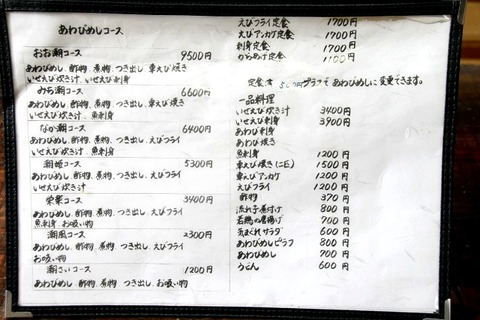 あわびめしコース
おお潮コース 9500円
あわびめし、酢物、煮物、つき出し、車えび焼き
いせえび炊き汁、いせえび刺身
みち潮コース 6600円
あわびめし、酢物、煮物、つき出し、車えび焼き
いせえび炊き汁、魚刺身
なか潮コース 6400円
あわびめし、酢物、煮物、つき出し、えびフライ
いせえび炊き汁、魚刺身
潮姫コース 5300円
あわびめし、酢物、煮物、つき出し、えびフライ
いせえび炊き汁
コース 3400円
あわびめし、酢物、煮物、つき出し、えびフライ
魚刺身、お吸い物
潮風コース 2300円
あわびめし、酢物、煮物、つき出し、えびフライ
お吸い物
潮さいコース 1200円
あわびめし、酢物、煮物、つき出し、お吸い物
えびフライ定食 1700円
えびアンカケ定食 1700円
刺身定食 1700円
からあげ定食 1100円
定食は 500円プラスで あわびめしに変更できます。
一品料理
いせえび炊き汁 3400円
いせえび刺身 3900円
あわび刺身
あわび焼き
魚刺身 1200円
車えび焼き(2匹) 1500円
車えびアンカケ 1200円
えびフライ 1200円
酢物 370円
流れ子煮付け 800円
若鶏の唐揚げ 700円
気まぐれサラダ 600円
あわびめしピラフ 800円
あわびめし 700円
うどん 600円